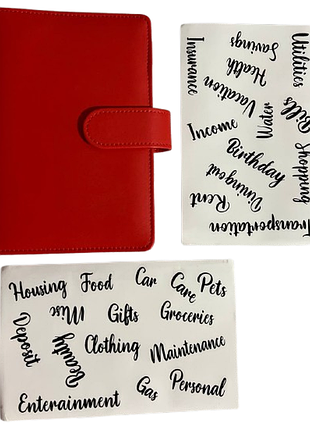 Utilities
Savings
Insurance
Health
Vacation
Bills
Water
Income
Shopping
Birthday
Dining out
Rent
Transportation
Housing
Food
Car
Care
Pets
Misc
Gifts
Groceries
Deposit
Beauty
Clothing
Maintenance
Gas
Personal
Enterainment